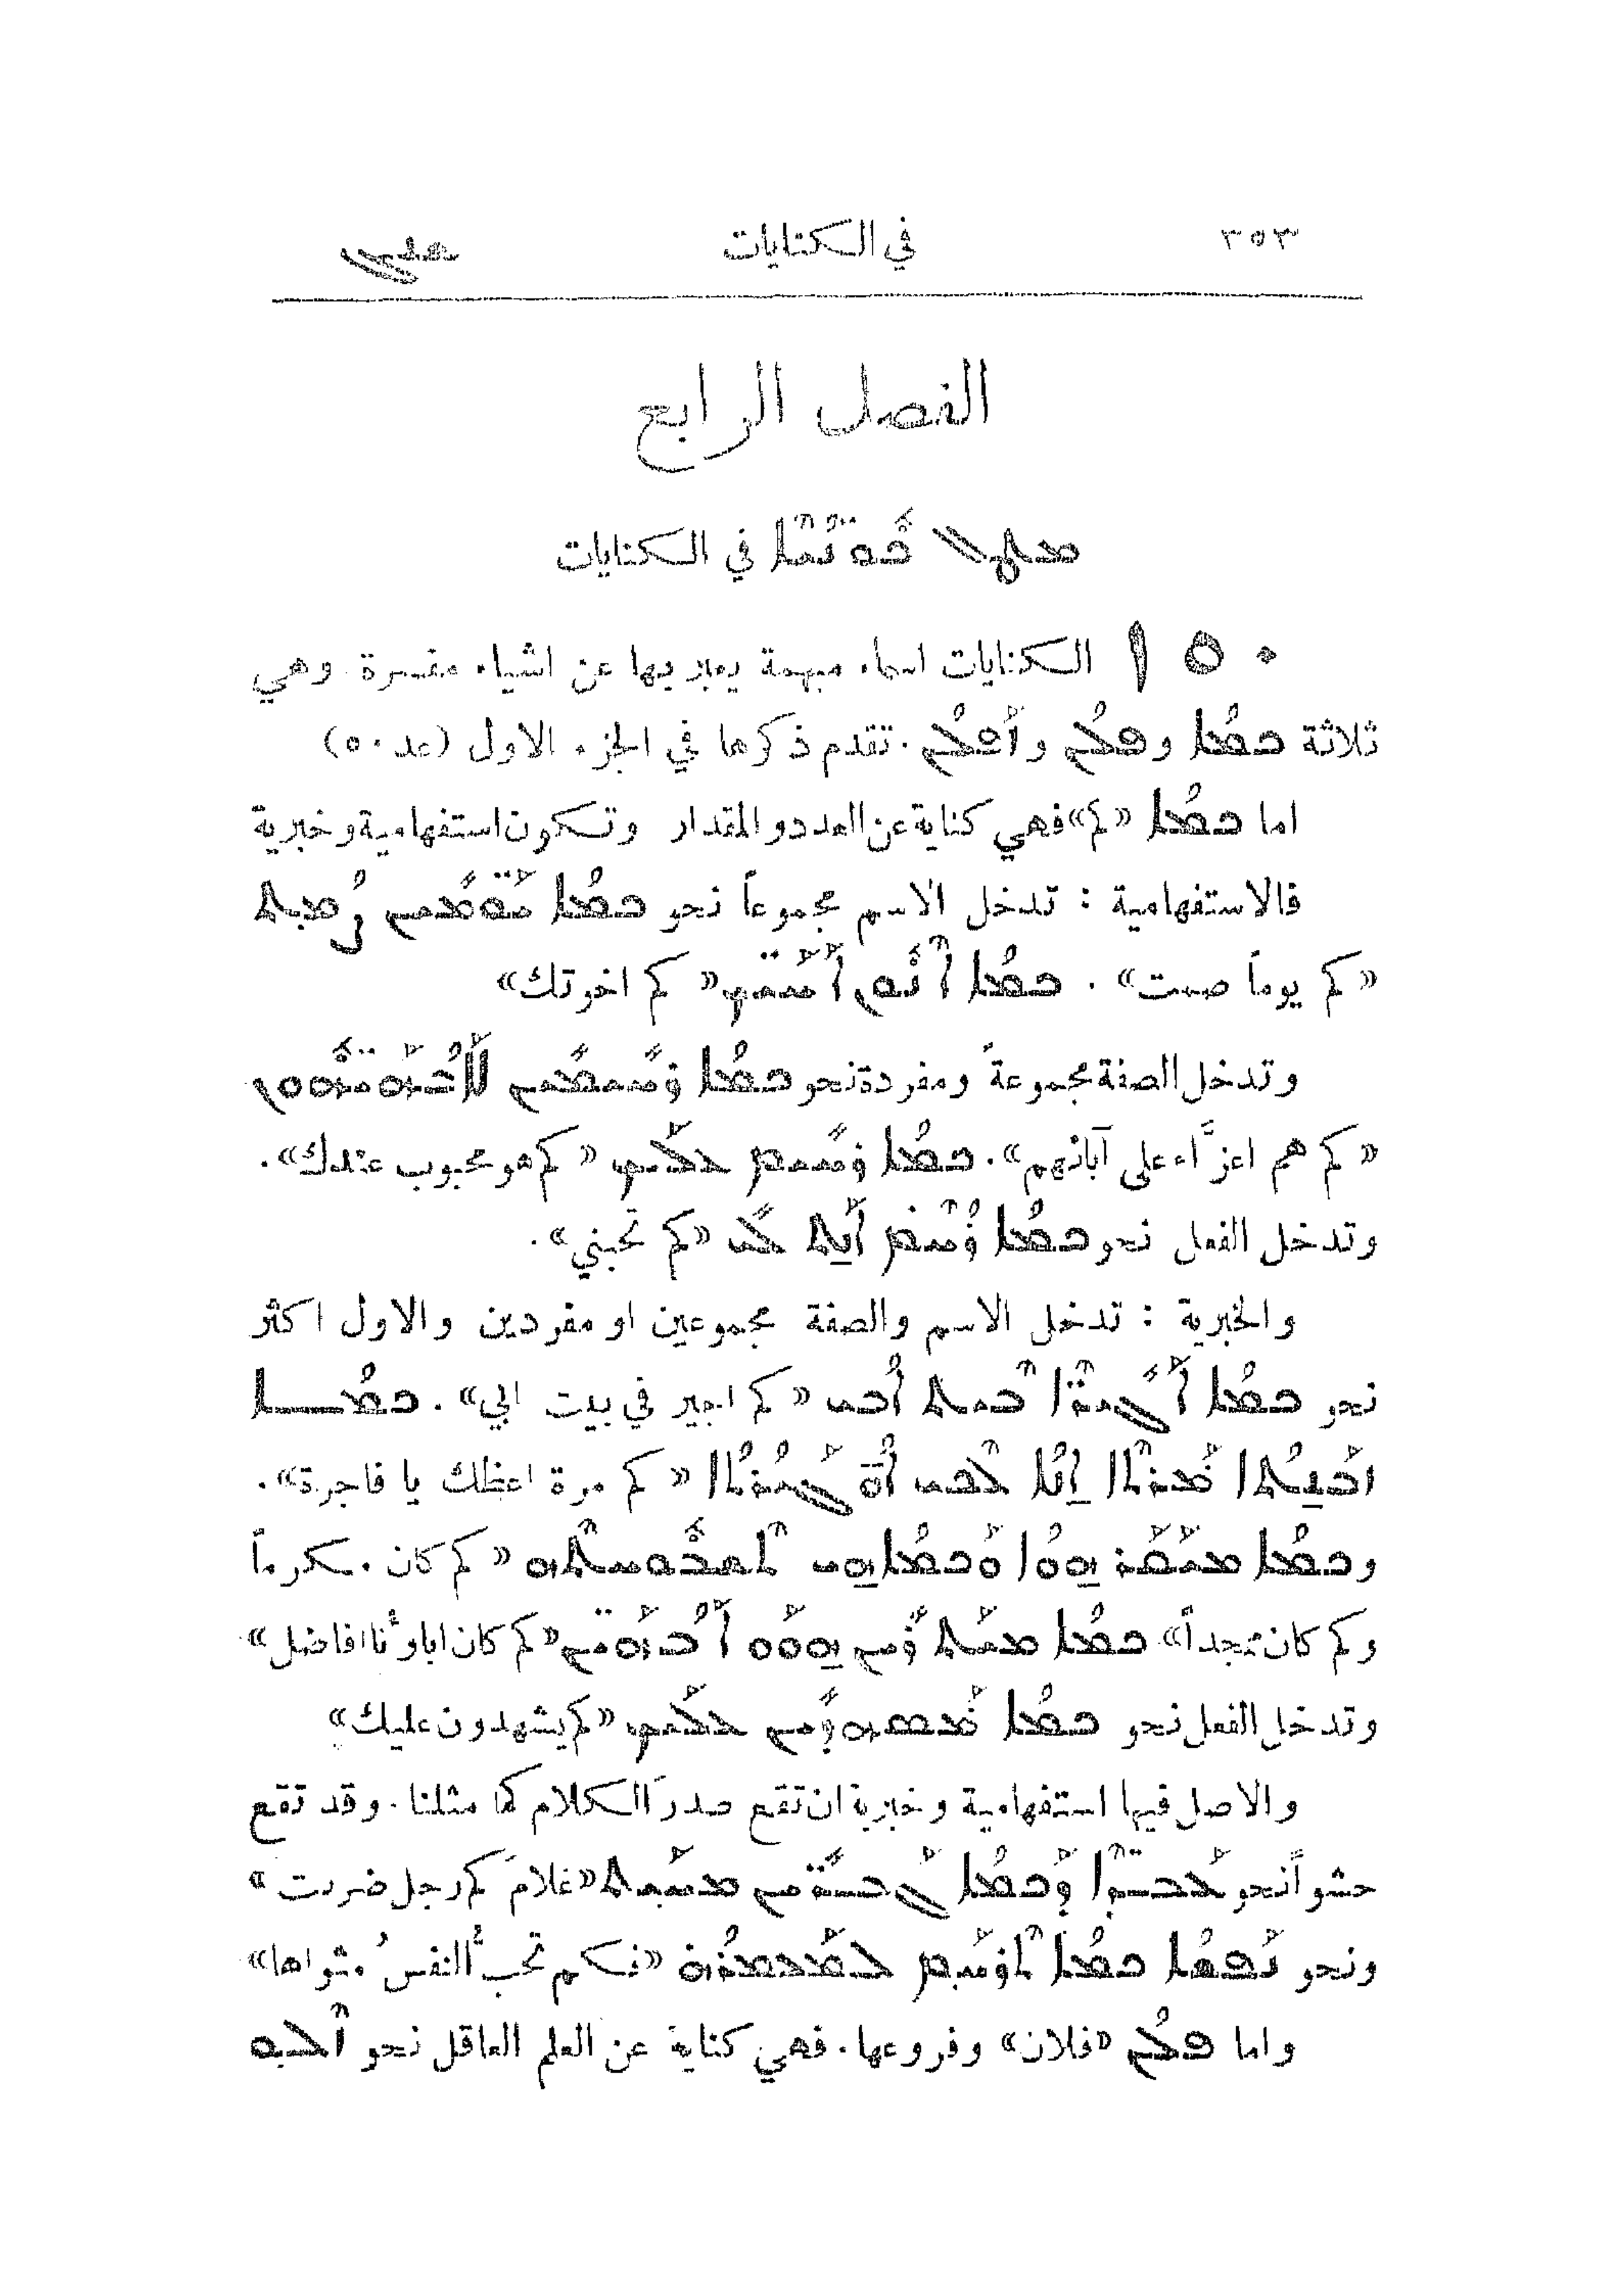 ٣٥٣ في الكنايات
الفصل الرابع
ܡܛܠ ܟܘܢܝܐ في الكنايات
١٥٠ الكنايات اسماء مبهمة يعبر بها عن اشياء مفسرة وهي
ثلاثة ܟܡܐ و ܦܠܢ و ܐܦܠܢ . تقدم ذكرها في الجزء الاول (عد ٥٠)
اما ܟܡܐ «كم» فهي كناية عن العدد والمقدار وتكون استفهامية وخبرية
فالاستفهامية : تدخل الاسم مجموعاً نحو ܟܡܐ ܝܘܡܝܢ ܨܡܬ
« كم يوماً صمت» . ܟܡܐ ܐܢܘܢ ܐܚܝܟ « كم اخوتك»
وتدخل الصفة مجموعةً ومفردة نحو ܟܡܐ ܪܚܝܡܝܢ ܠܐܒܗܝܗܘܢ
« كم هم اعزَّاء على آبائهم» . ܟܡܐ ܪܚܝܡ ܥܠܝܟ « كم هو محبوب عندك» .
وتدخل الفعل نحو ܟܡܐ ܪܚܡ ܐܢܬ ܠܝ «كم تحبني» .
والخبرية : تدخل الاسم والصفة مجموعين او مفردين والاول اكثر
نحو ܟܡܐ ܐܓܝܪܐ ܒܝܬ ܐܒܝ « كم اجير في بيت ابي» . ܟܡܐ
ܙܒܢܬܐ ܡܪܬܐ ܐܢܐ ܠܟܝ ܐܘ ܓܝܪܬܐ « كم مرة اعظك يا فاجرة» .
و ܟܡܐ ܡܝܩܪ ܗܘܐ ܘܟܡܐ ܗܝ ܬܫܒܘܚܬܗ « كم كان مكرماً
وكم كان مجداً» ܟܡܐ ܡܝܬܪܝܢ ܗܘܘ ܐܒܗܝܢ «كم كان اباؤُنا افاضل»
وتدخل الفعل نحو ܟܡܐ ܡܣܗܕܝܢ ܥܠܝܟ «كم يشهدون عليك»
والاصل فيها استفهامية وخبرية ان تقع صدرَ الكلام كما مثلنا . وقد تقع
حشواً نحو ܥܒܕܐ ܕܟܡܐ ܓܒܪܝܢ ܡܚܝܬ «غلامَ كم رجل ضربت»
ونحو ܢܦܫܐ ܟܡܐ ܬܪܚܡ ܠܡܥܡܪܗ «فكم تحبُّ النفسُ مثواها»
واما ܦܠܢ «فلان» وفروعها . فهي كناية عن العلم العاقل نحو